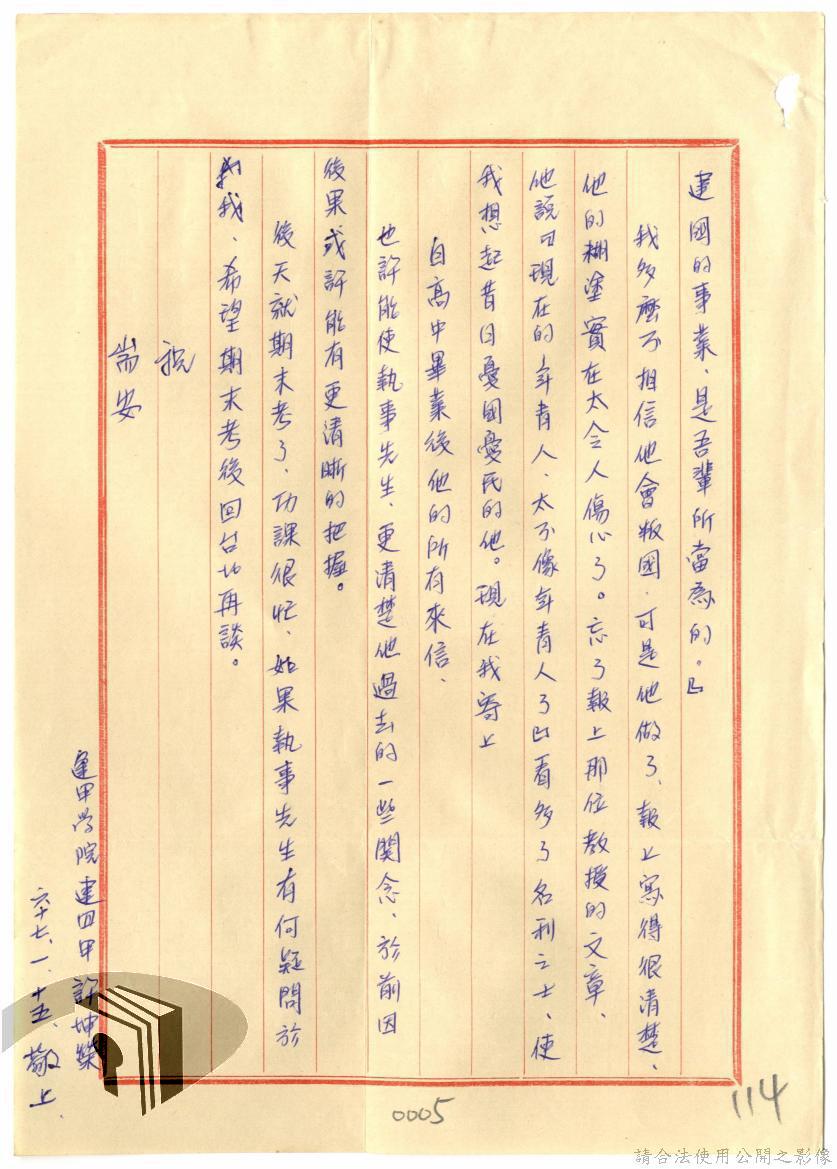 建國的事業、是吾輩所當為的。』
我多麼不相信他會叛國．可是他做了、報上寫得很清楚、
他的糊塗實在太令人傷心了。忘了報上那位教授的文章、
他說『現在的年青人、太不像年青人了』看多了名利之士、使
我想起昔日憂國憂民的他。現在我寄上
自高中畢業後他的所有來信、
也許能使執事先生、更清楚他過去的一些關念、於前因
後果或許能有更清晰的把握。
後天就期末考了、功課很忙、如果執事先生有何疑問於
我、希望期末考後回台北再談。
祝
耑安
逢甲学院 建四甲 許坤榮
六十七、一、十五、敬上、
0005
114
請合法使用公開之影像